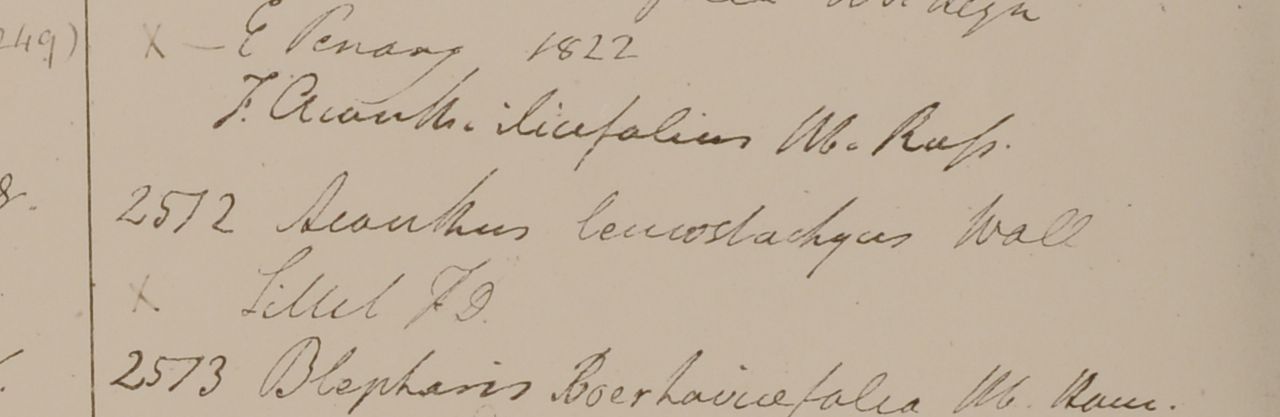 249)
X — E Penang 1822
F. Acanth. ilicifolius Hb. Russ.
2512 Acanthus leucostachyus Wall
X Sillet F.D.
2513 Blepharis Boerhaviæfolia Hb. Ham.